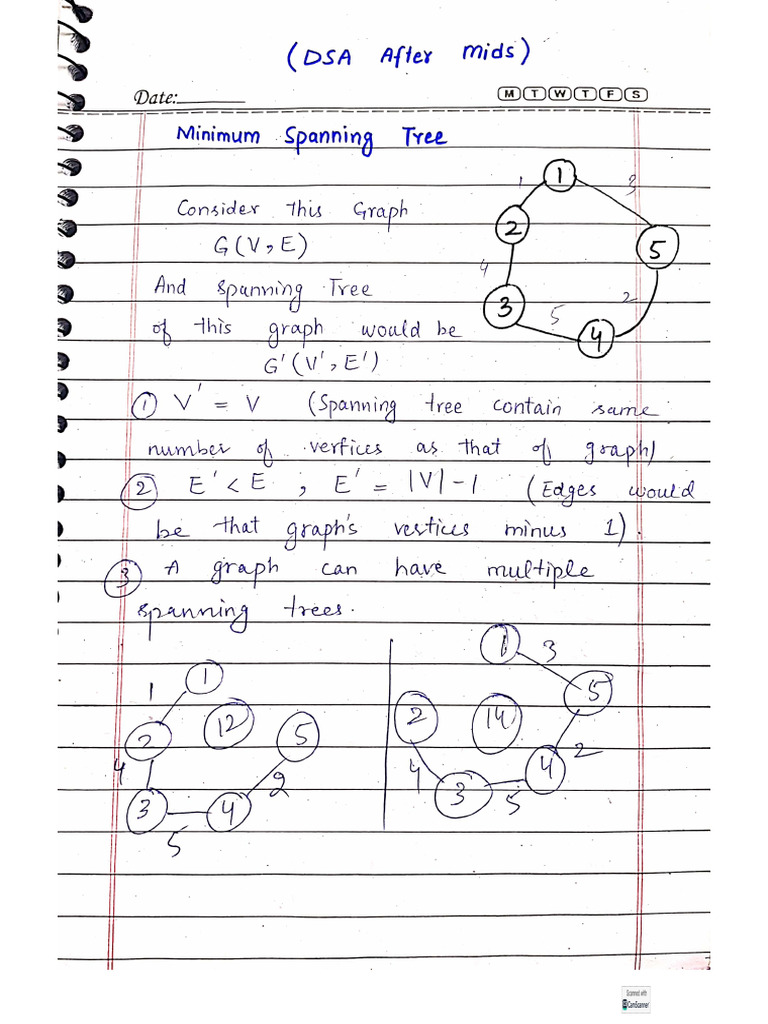 (DSA After Mids)
Date:
M T W T F S
Minimum Spanning Tree
Consider this Graph
G(V, E)
And Spanning Tree
of this graph would be
G'(V', E')
1 2 3 4 5
1 3 4 5 2
① V' = V (Spanning tree contain same
number of vertices as that of graph)
② E' < E , E' = |V| - 1 (Edges would
be that graph's vertices minus 1).
③ A graph can have multiple
spanning trees.
1 1 2 12 5
4 3 5 4 2
1 3 5 2 14
4 3 5 4 2
Scanned with
CamScanner